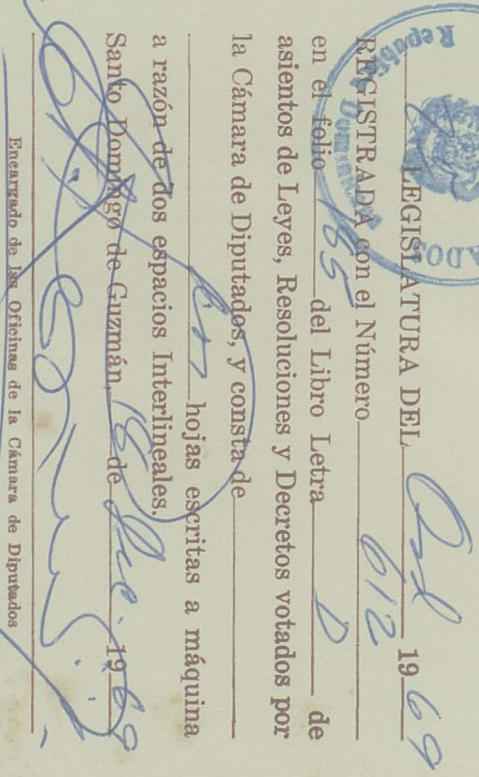 LEGISLATURA DEL Ord 1969
REGISTRADA con el Número 612
en el folio 185 del Libro Letra D de
asientos de Leyes, Resoluciones y Decretos votados por
la Cámara de Diputados, y consta de
hojas escritas a máquina
a razón de dos espacios Interlineales.
Santo Domingo de Guzmán, 16 de Dic. 1969
Encargado de las Oficinas de la Cámara de Diputados